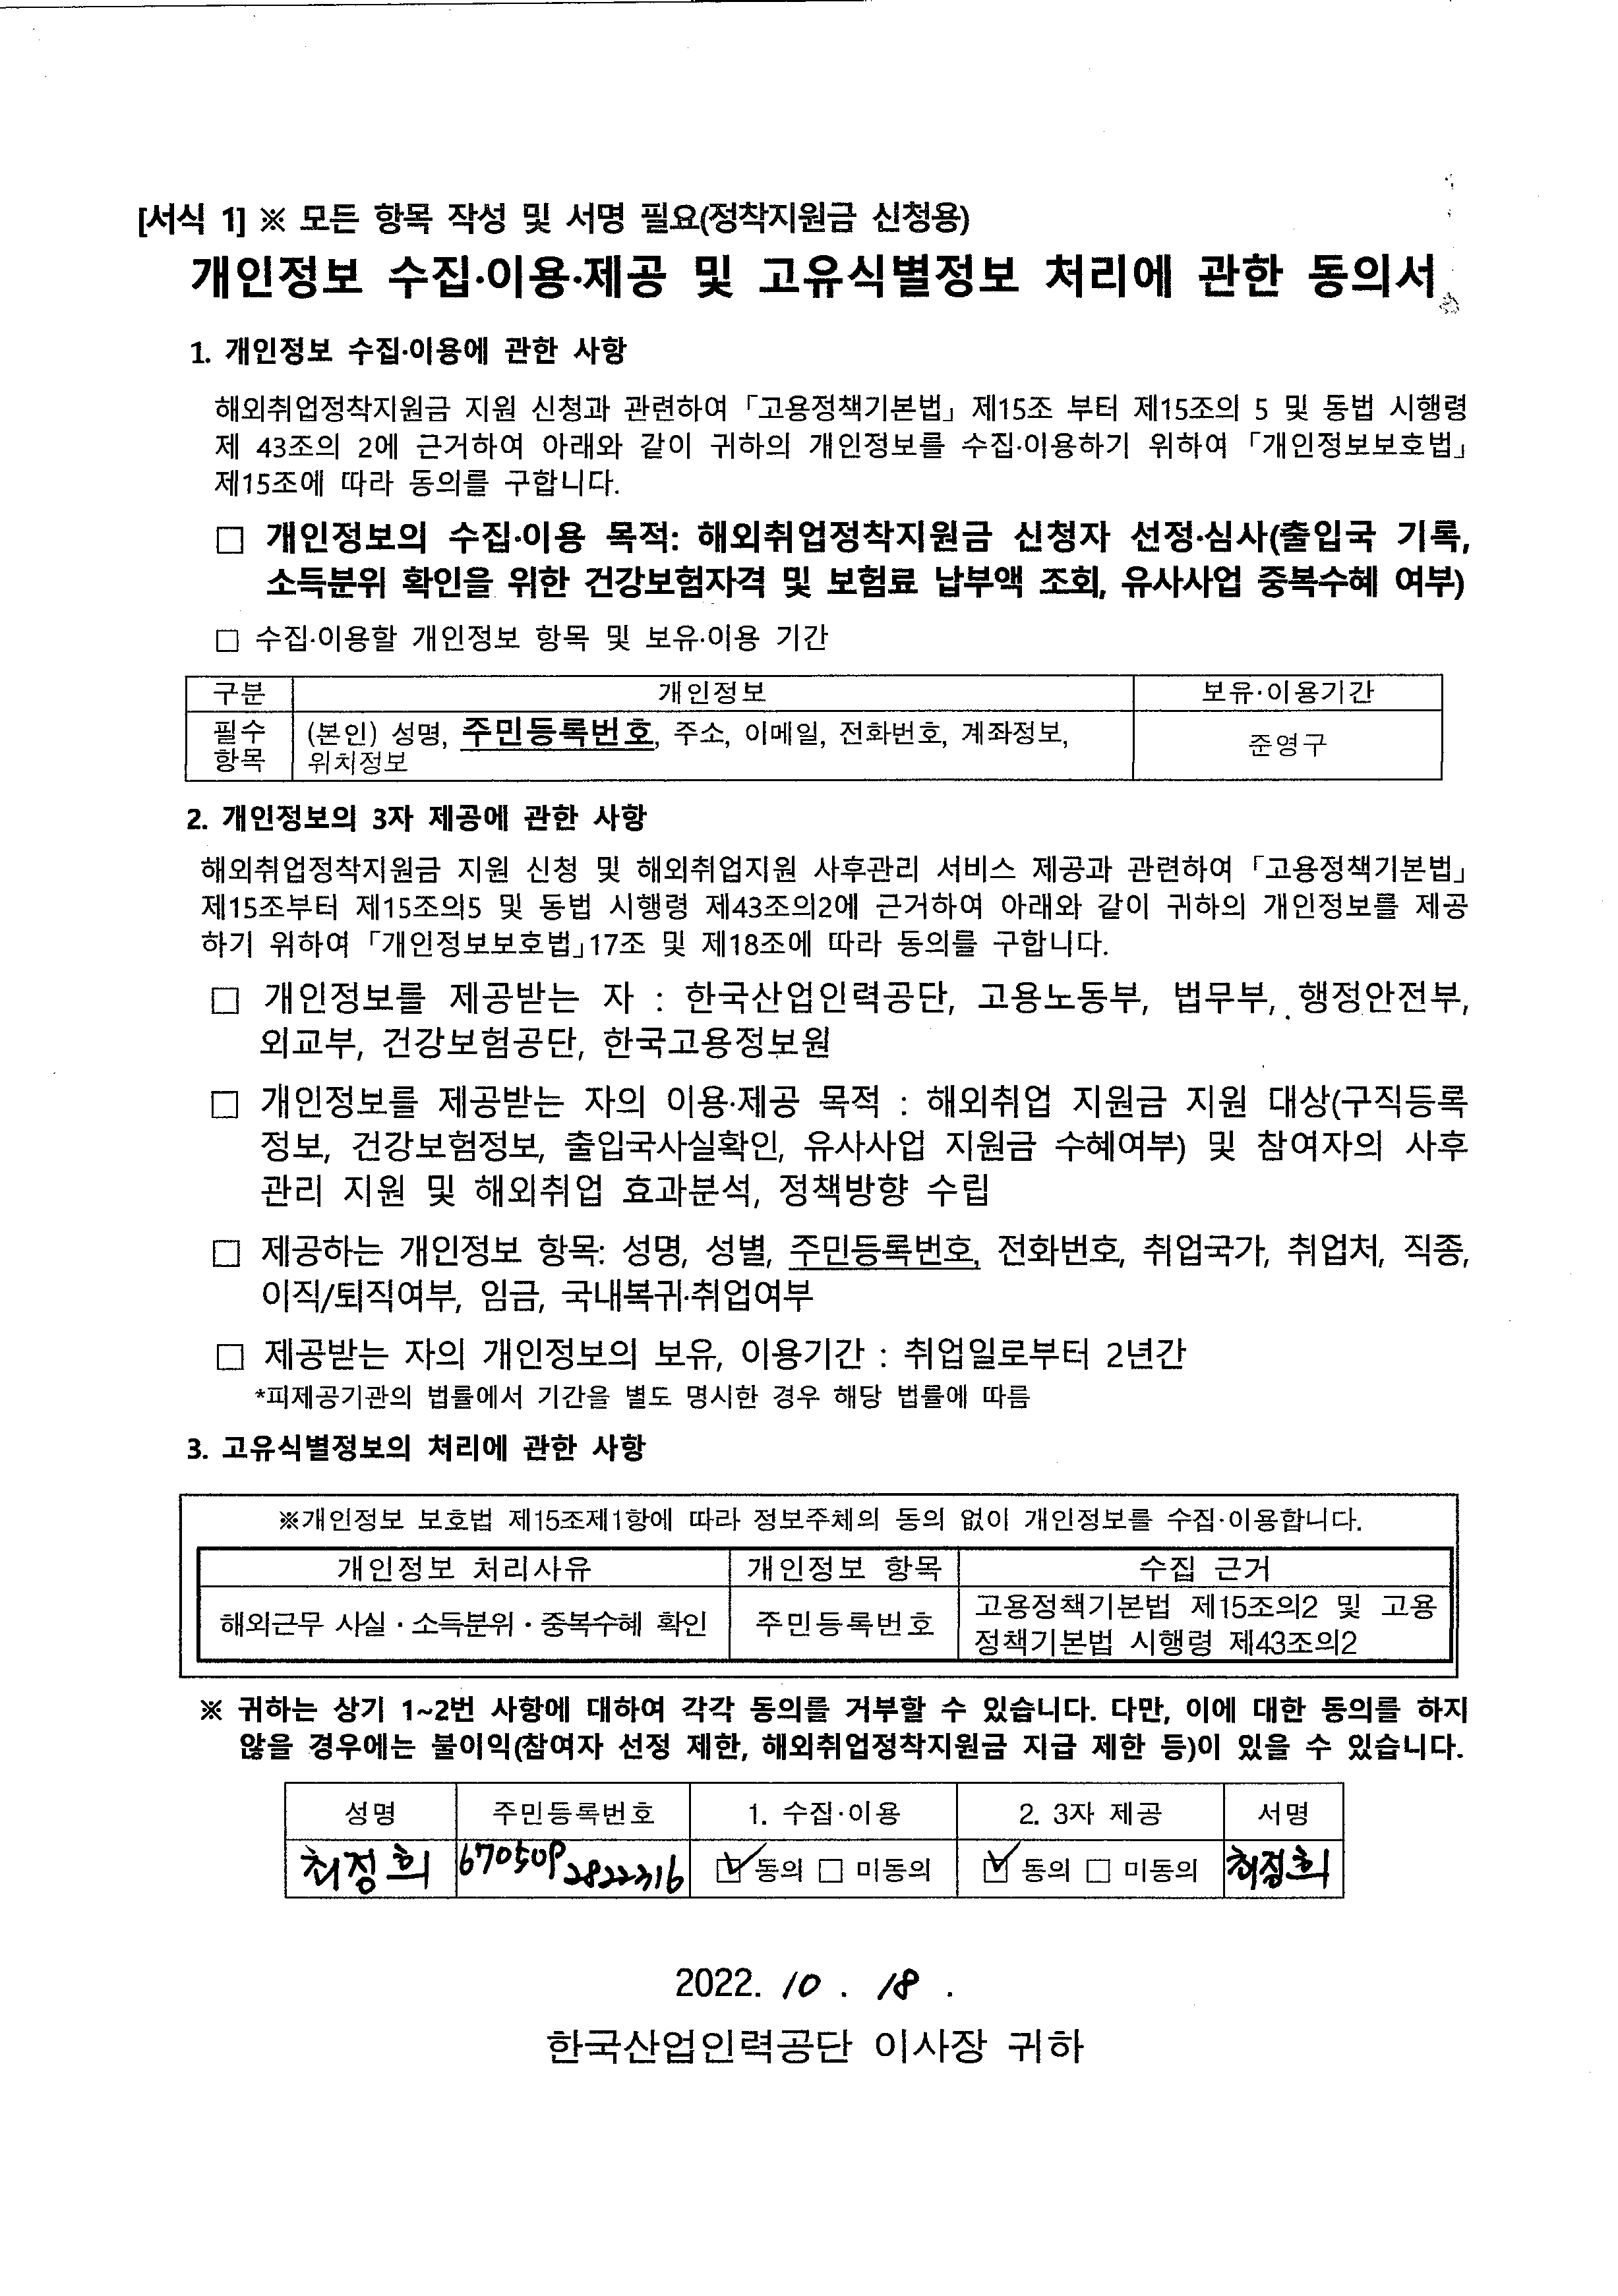 [서식 1] ※ 모든 항목 작성 및 서명 필요(정착지원금 신청용)
개인정보 수집·이용·제공 및 고유식별정보 처리에 관한 동의서
1. 개인정보 수집·이용에 관한 사항
해외취업정착지원금 지원 신청과 관련하여 「고용정책기본법」 제15조 부터 제15조의 5 및 동법 시행령
제 43조의 2에 근거하여 아래와 같이 귀하의 개인정보를 수집·이용하기 위하여 「개인정보보호법」
제15조에 따라 동의를 구합니다.
□ 개인정보의 수집·이용 목적: 해외취업정착지원금 신청자 선정·심사(출입국 기록,
소득분위 확인을 위한 건강보험자격 및 보험료 납부액 조회, 유사사업 중복수혜 여부)
□ 수집·이용할 개인정보 항목 및 보유·이용 기간
구분 개인정보 보유·이용기간
필수 (본인) 성명, 주민등록번호, 주소, 이메일, 전화번호, 계좌정보,
항목 위치정보 준영구
2. 개인정보의 3자 제공에 관한 사항
해외취업정착지원금 지원 신청 및 해외취업지원 사후관리 서비스 제공과 관련하여 「고용정책기본법」
제15조부터 제15조의5 및 동법 시행령 제43조의2에 근거하여 아래와 같이 귀하의 개인정보를 제공
하기 위하여 「개인정보보호법」17조 및 제18조에 따라 동의를 구합니다.
□ 개인정보를 제공받는 자 : 한국산업인력공단, 고용노동부, 법무부, 행정안전부,
외교부, 건강보험공단, 한국고용정보원
□ 개인정보를 제공받는 자의 이용·제공 목적 : 해외취업 지원금 지원 대상(구직등록
정보, 건강보험정보, 출입국사실확인, 유사사업 지원금 수혜여부) 및 참여자의 사후
관리 지원 및 해외취업 효과분석, 정책방향 수립
□ 제공하는 개인정보 항목: 성명, 성별, 주민등록번호, 전화번호, 취업국가, 취업처, 직종,
이직/퇴직여부, 임금, 국내복귀·취업여부
□ 제공받는 자의 개인정보의 보유, 이용기간 : 취업일로부터 2년간
*피제공기관의 법률에서 기간을 별도 명시한 경우 해당 법률에 따름
3. 고유식별정보의 처리에 관한 사항
※개인정보 보호법 제15조제1항에 따라 정보주체의 동의 없이 개인정보를 수집·이용합니다.
개인정보 처리사유 개인정보 항목 수집 근거
해외근무 사실·소득분위·중복수혜 확인 주민등록번호 고용정책기본법 제15조의2 및 고용
정책기본법 시행령 제43조의2
※ 귀하는 상기 1~2번 사항에 대하여 각각 동의를 거부할 수 있습니다. 다만, 이에 대한 동의를 하지
않을 경우에는 불이익(참여자 선정 제한, 해외취업정착지원금 지급 제한 등)이 있을 수 있습니다.
성명 주민등록번호 1. 수집·이용 2. 3자 제공 서명
최정희 ☑ 동의 □ 미동의 ☑ 동의 □ 미동의 최정희
2022. 10 . 18 .
한국산업인력공단 이사장 귀하